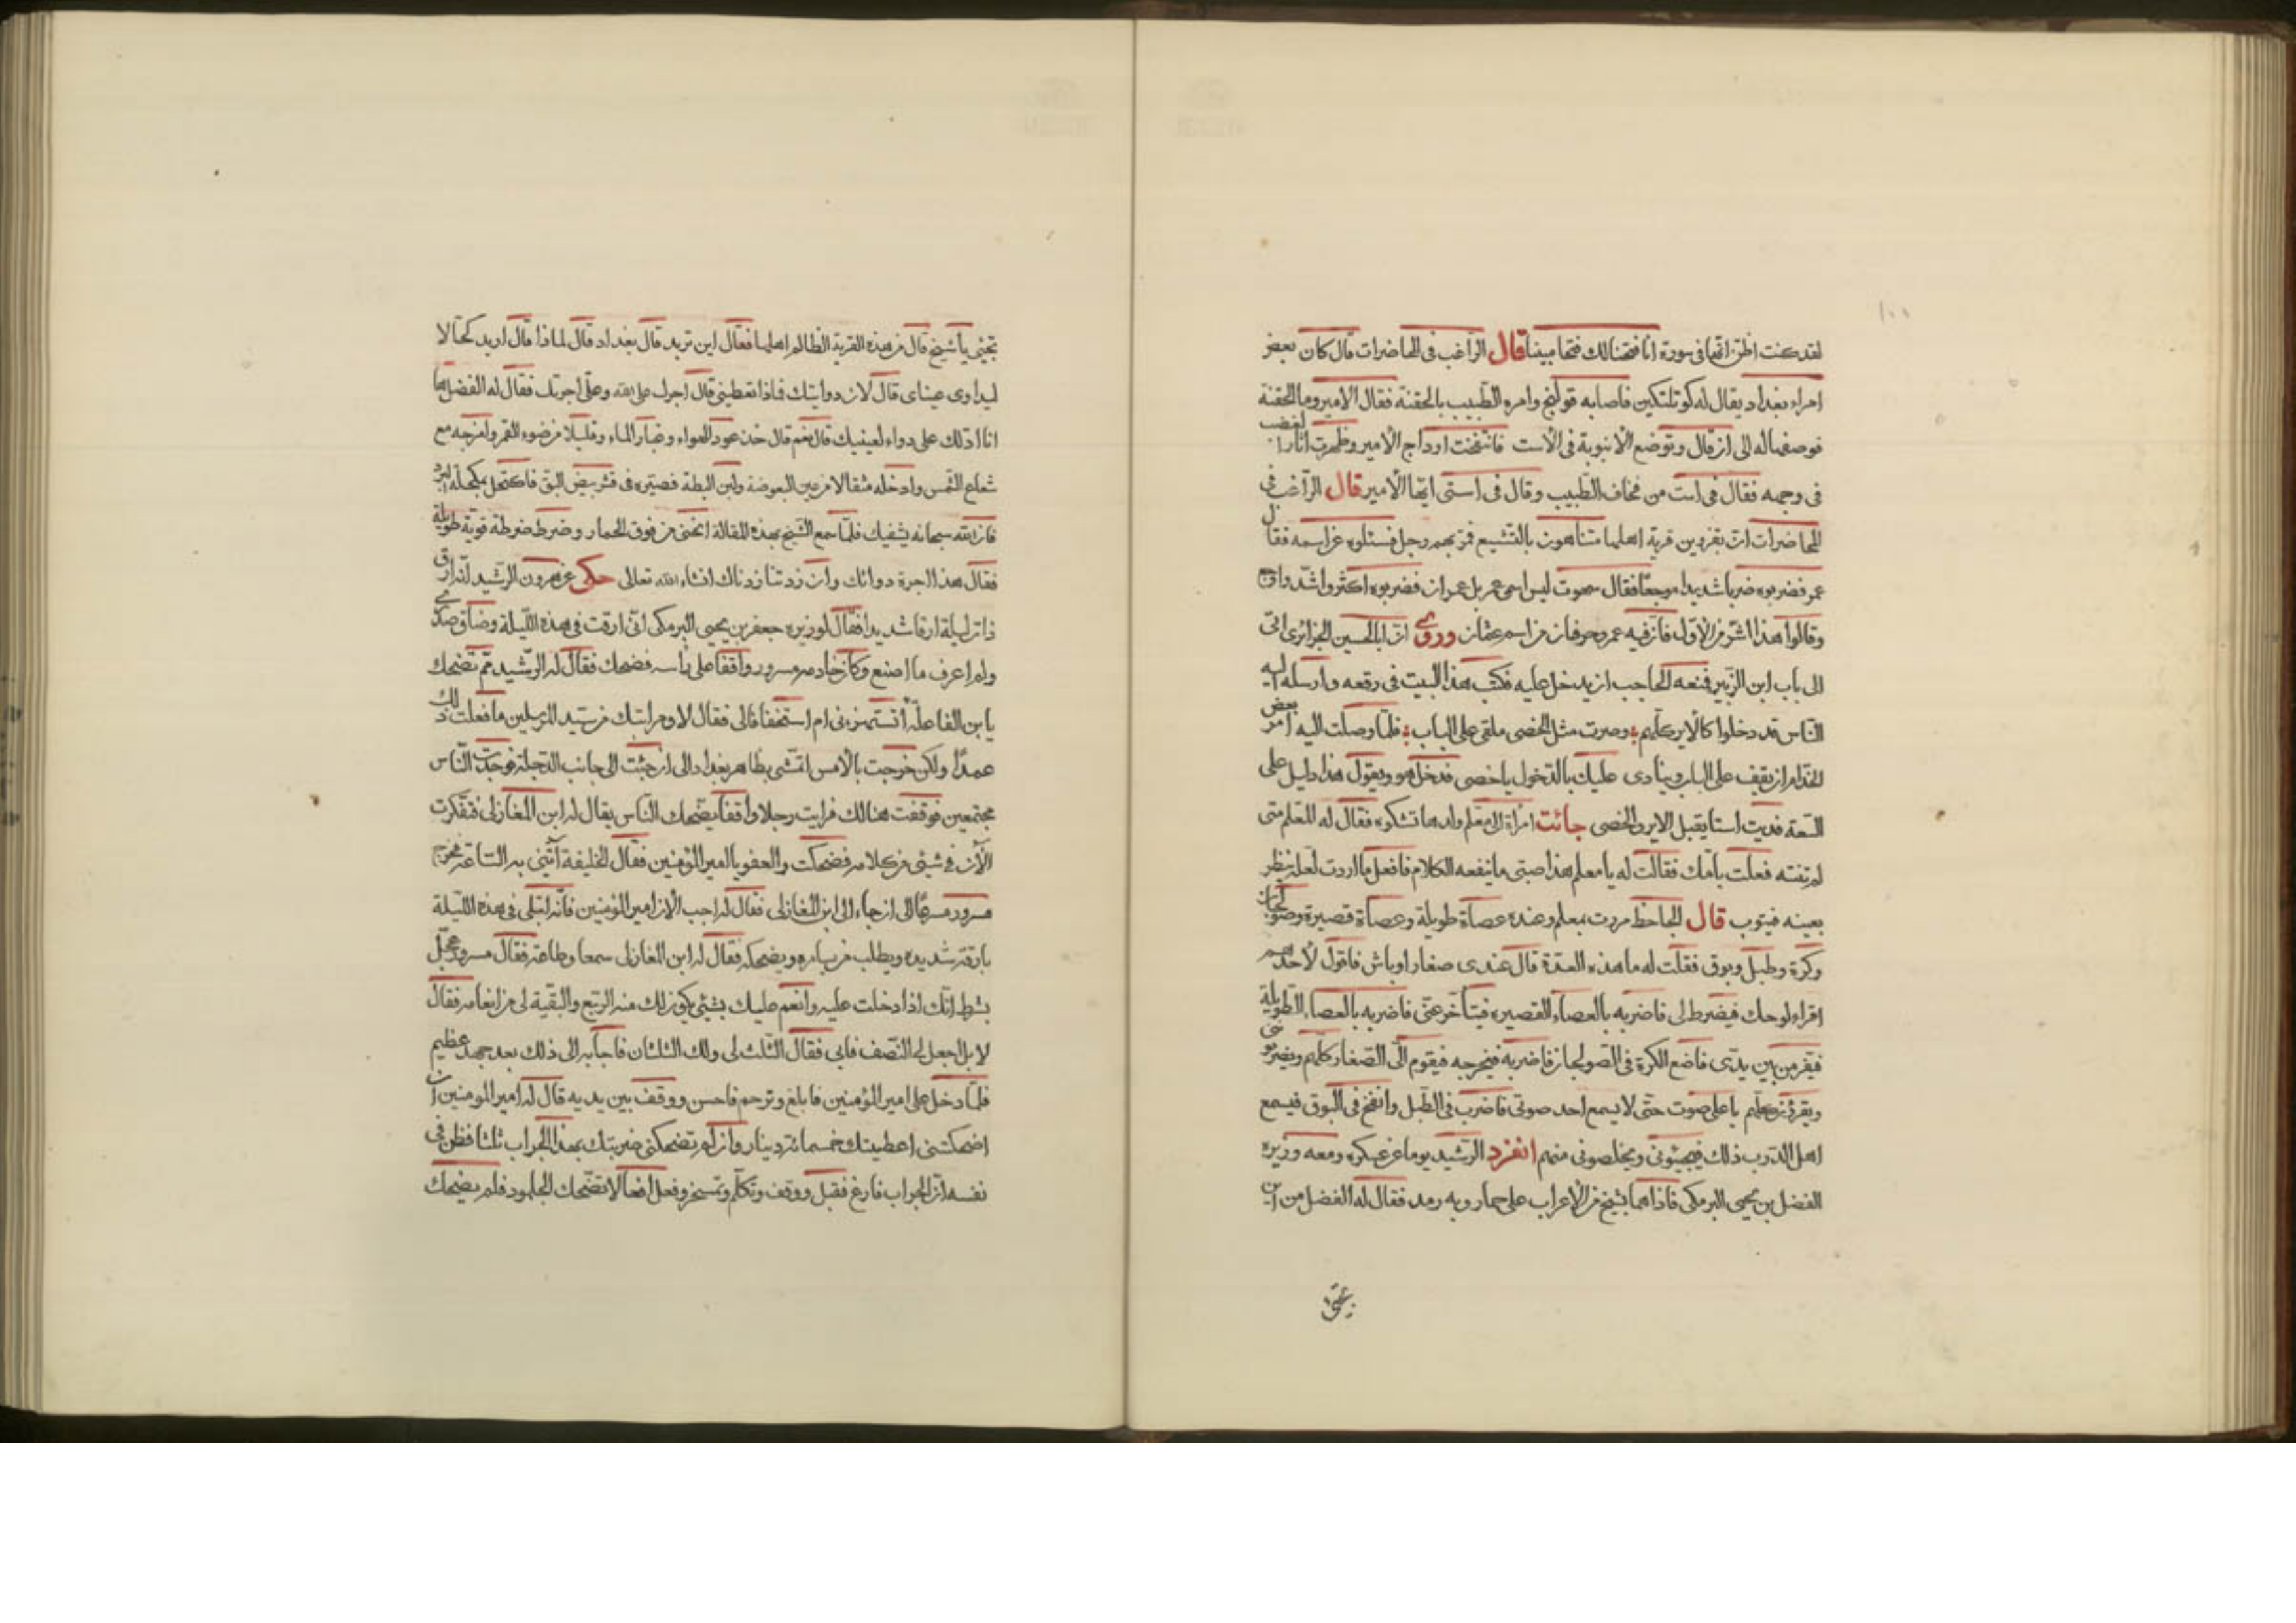 لقد كنت اظن انها فى سورة انا فتحنا لك فتحا مبينا قال الراغب فى المحاضرات قال كان بعض
امراء بغداد يقال له كوتلتكين فاصابه قولنج وامره الطبيب بالحقنة فقال الامير وما الحقنة
فوصفها له الى ان قال وتوضع الانبوبة فى الاست فانتفخت اوداج الامير وظهرت اثار الغضب
فى وجهه فقال فى است من فخاف الطبيب وقال فى استى ايها الأمير قال الراغب فى
المحاضرات ان بقزوين قرية اهلها متناهون بالتشيع فمر بهم رجل فسئلوه عن اسمه فقال
عمر فضربوه ضربا شديدا موجعا فقال سهوت ليس اسمى عمر بل عمران فضربوه اكثر واشد واوجع
وقالوا هذا اشر من الأول فان فيه عمر وحرفان من اسم عثمان وروى ان ابا الحسين الجزائرى اتى
الى باب ابن الزبير فمنعه الحاجب ان يدخل عليه فكتب هذا البيت فى رقعه وارسله اليه
الناس قد دخلوا كالاير كلهم وصرت مثل الخصى ملقى على الباب فلما وصلت اليه امر بعض
الخدام ان يقف على الباب وينادى عليك بالدخول ياخصى فدخل هو ويقول هذا دليل على
السعة فديت استا يقبل الاير والخصى جائت امرأة الى معلم ولدها تشكوه فقال له المعلم متى
لم تنته فعلت بامك فقالت له يا معلم هذا صبى ما ينفعه الكلام فافعل ما اردت لعله ينظر
بعينه فيتوب قال الجاحظ مررت بمعلم وعنده عصاة طويلة وعصاة قصيرة وصولجان
وكرة وطبل وبوق فقلت له ما هذه العدة قال عندى صغار اوباش فاقول لأحدهم
اقراء لوحك فيضرط لى فاضربه بالعصاء القصيره فيتأخر عنى فاضربه بالعصاء الطويلة
فيفر من بين يدى فاضع الكرة فى الصولجان فاضربه فيخرجه فيقوم الى الصغار كلهم ويضربونى
باعلى صوت حتى لا يسمع احد صوتى فاضرب فى الطبل وانفخ فى البوق فيسمع
اهل الدرب ذلك فيجيئونى ويخلصونى منهم انفرد الرشيد يوما عن عسكره ومعه وزيره
الفضل بن يحيى البرمكى فاذا هما بشيخ من الأعراب على حمار وبه رمد فقال له الفضل من اين
تجئ يا شيخ قال من هذه القرية الظالم اهلها فقال اين تريد قال بغداد قال لماذا قال اريد كحالا
ليداوى عيناى قال لان دوايتك فماذا تعطينى قال اجرك على الله وعلى اجرتك فقال له الفضل
انا ادلك على دواء لعينيك قال نعم قال خذ عود الهواء وغبار الماء وقليلا من ضوء القمر وامزجه مع
شعاع الشمس وادخله مثقالا من عين البعوضة ولبن البطة فصيره فى قشر بيض البق فاكتحل
فان الله سبحانه يشفيك فلما سمع الشيخ بهذه المقالة انحنى من فوق الحمار وضرط ضرطة قوية طويلة
فقال هذا اجرة دوائك وان زدتنا زدناك انشاء الله تعالى حكى عن هرون الرشيد انه ارق
ذات ليلة ارقا شديدا فقال لوزيره جعفر بن يحيى البرمكى انى ارقت فى هذه الليلة وضاق صدرى
ولم اعرف ما اصنع وكان خادمه مسرور واقفا على راسه فضحك فقال له الرشيد مم تضحك
يا بن الفاعلة أتستهزء بى ام استخفافا لى فقال لا وقرابتك من سيد المرسلين ما فعلت ذلك
عمدا ولكن خرجت بالأمس اتمشى بظاهر بغداد الى ان جئت الى جانب الدجلة فوجدت الناس
مجتمعين فوقفت هنالك فرايت رجلا واقفا يضحك الناس يقال له ابن المغازلى فتفكرت
الآن فى شيئ من كلامه فضحكت والعفو يا امير المؤمنين فقال الخليفة آتنى به الساعة فخرج
مسرور مسرعا الى ان جاء الى ابن المغازلى فقال له اجب الان امير المؤمنين فانه ابتلى فى هذه الليلة
بارقة شديده ويطلب من يسامره ويضحكه فقال له ابن المغازلى سمعا وطاعة فقال مسرور عجل
بشرط انك اذا دخلت عليه وانعم عليك بشيئ يكون لك منه الربع والبقية لى من انعامه فقال
لا بل اجعل لى النصف فابى فقال الثلث لى ولك الثلثان فاجابه الى ذلك بعد جهد عظيم
فلما دخل على امير المؤمنين فابلغ وترحم فاحسن ووقف بين يديه قال له امير المومنين ان
اضحكتنى اعطيتك خمسمائة دينار وان لم تضحكنى ضربتك بهذا الجراب ثلثا فظن فى
نفسه ان الجراب فارغ فقبل ووقف وتكلم وتمسخر وفعل افعالا تضحك الجلمود فلم يضحك